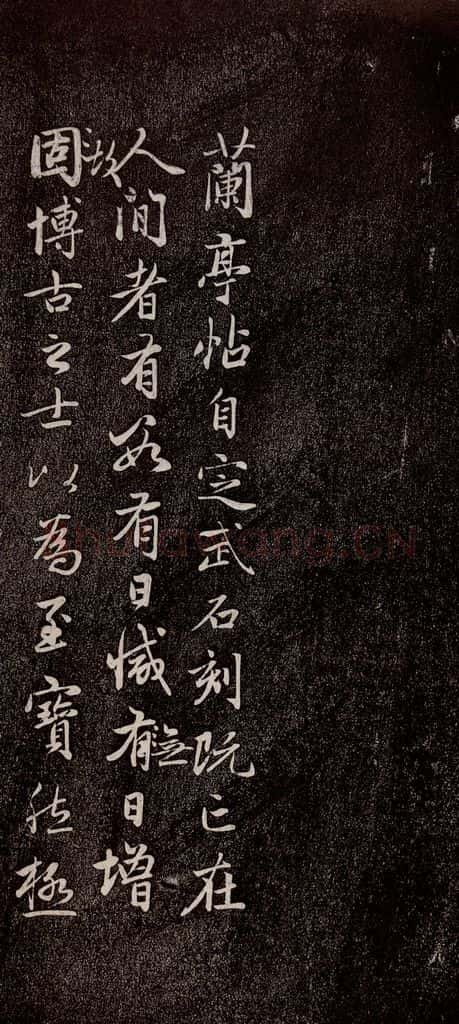 蘭亭帖自定武石刻既亡在
人間者有數有日減有無日增
固故博古之士以為至寶然極